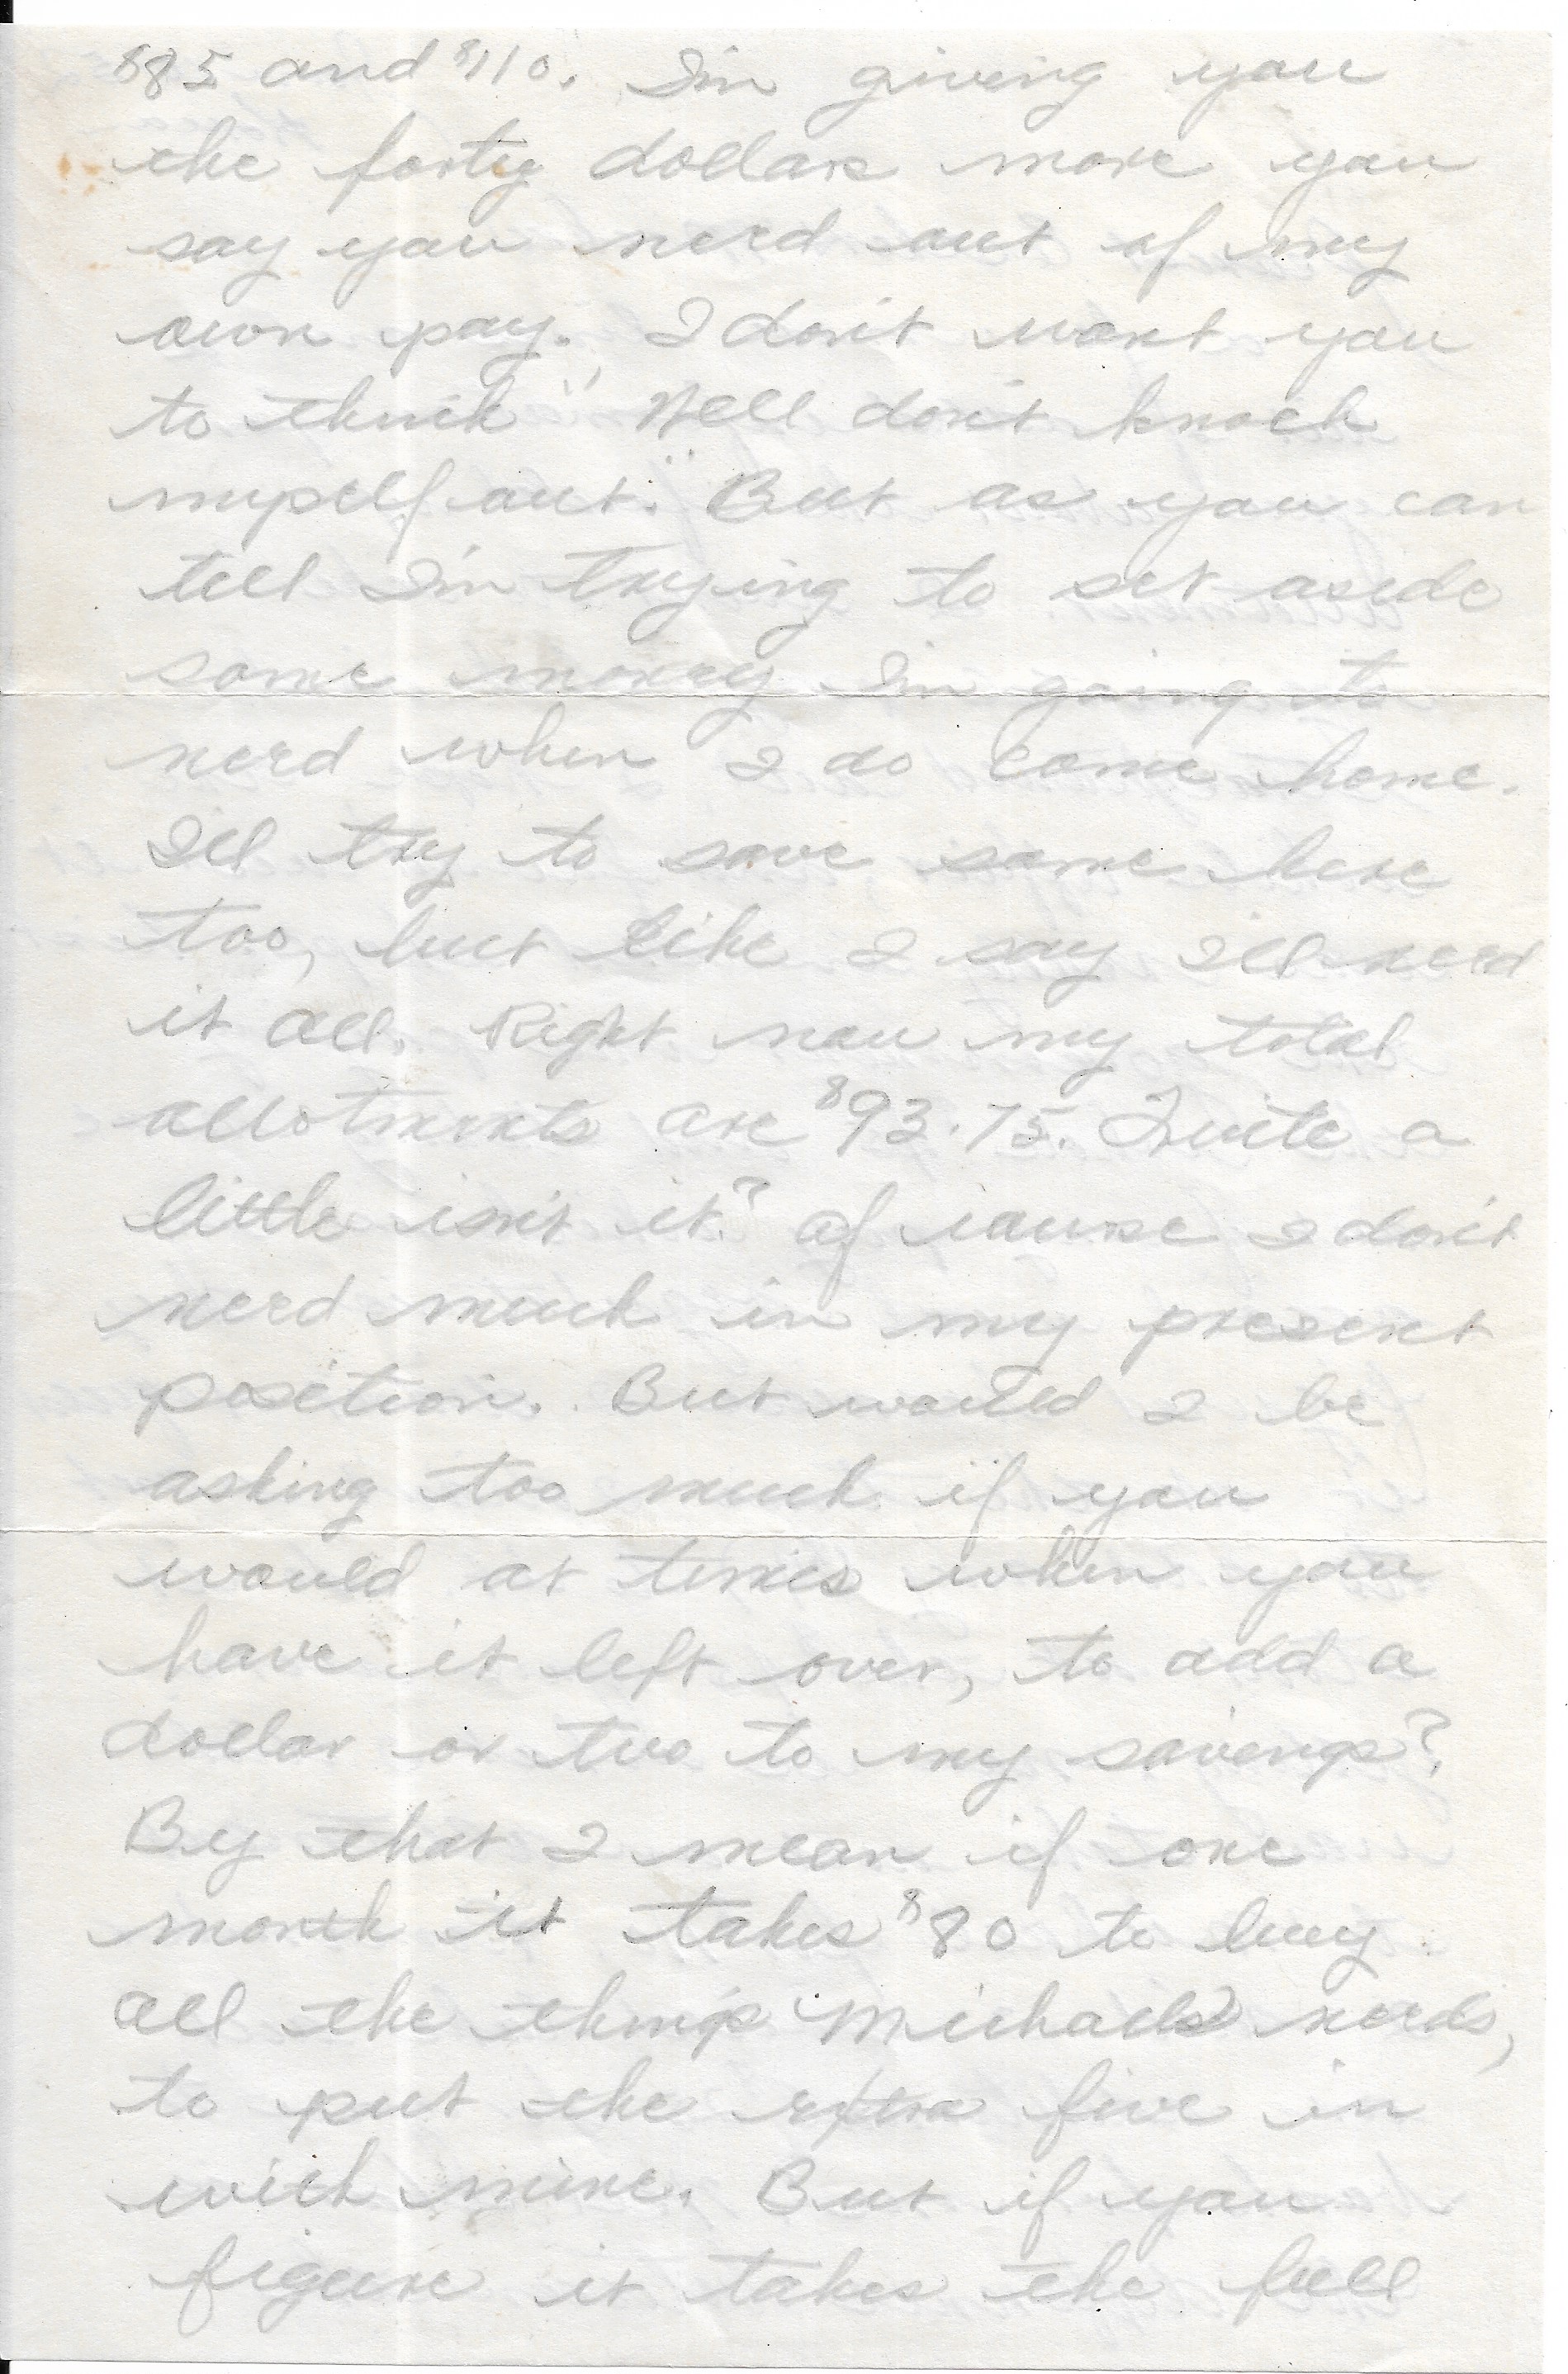 $85 and $110. I'm giving you
the forty dollars more you
say you need out of my
own pay. I don't want you
to think "Hell don't knock
myself out." But as you can
tell I'm trying to set aside
some money I'm going to
need when I do come home.
I'll try to save some here
too, but like I say I'll need
it all. Right now my total
allotments are $93.75. Quite a
little isn't it? Of course I don't
need much in my present
position. But would I be
asking too much if you
would at times when you
have it left over, to add a
dollar or two to my savings?
By that I mean if one
month it takes $80 to buy
all the things Michael needs,
to put the extra five in
with mine. But if you
figure it takes the full